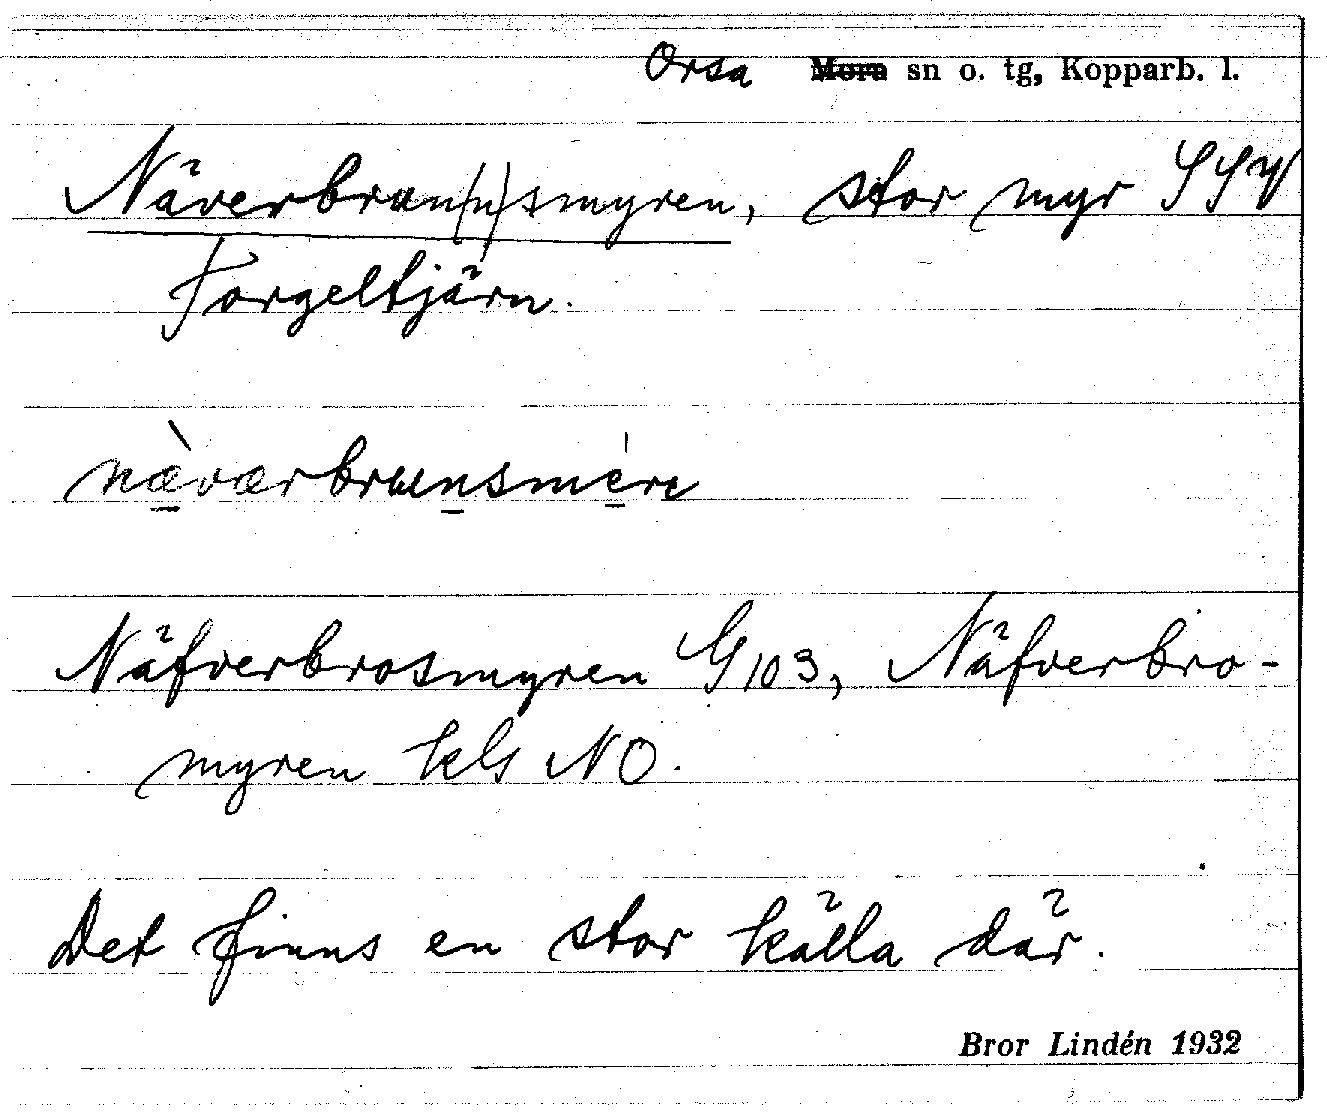 Orsa Mora sn o. tg, Kopparb. l.
Näverbran(n)smyren, stor myr SSV
Torgeltjärn.
Näfverbrosmyren G103, Näfverbro-
myren kls NO.
Det finns en stor källa där.
Bror Lindén 1932